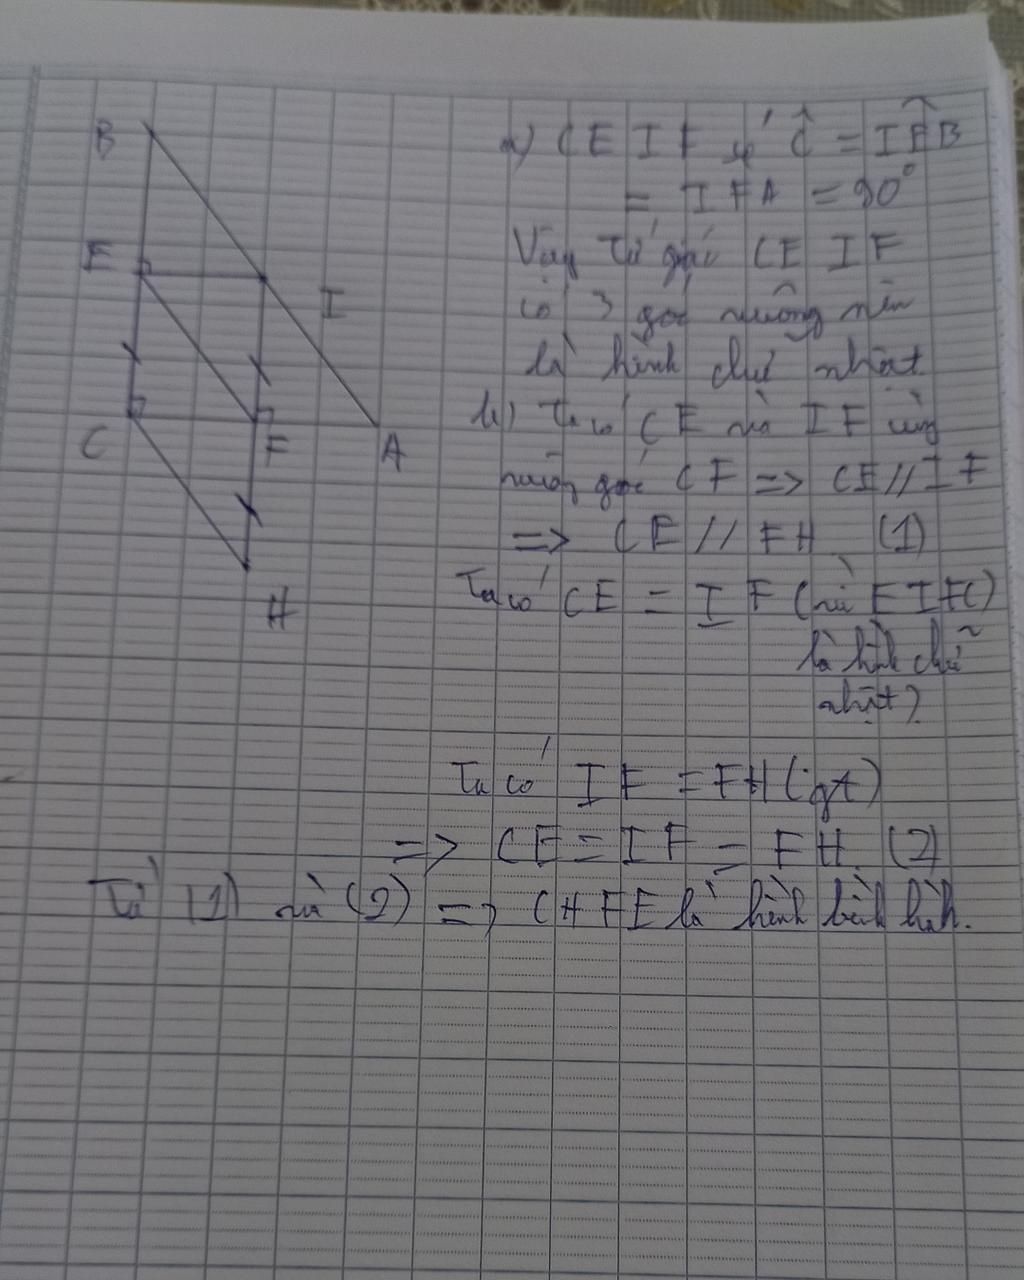 B
E
I
C
F
A
H
a) CEIF có Ĉ = IÊB
= IFA = 90°
Vậy tứ giác CEIF
có 3 góc vuông nên
là hình chữ nhật.
b) Ta có CE và IF cùng
vuông góc CF => CE//IF
=> CE // FH (1)
Ta có CE = IF (vì EIFC)
là hình chữ
nhật)
Ta có IF = FH (gt)
=> CE = IF = FH. (2)
Từ (1) và (2) => CHFE là hình bình hành.